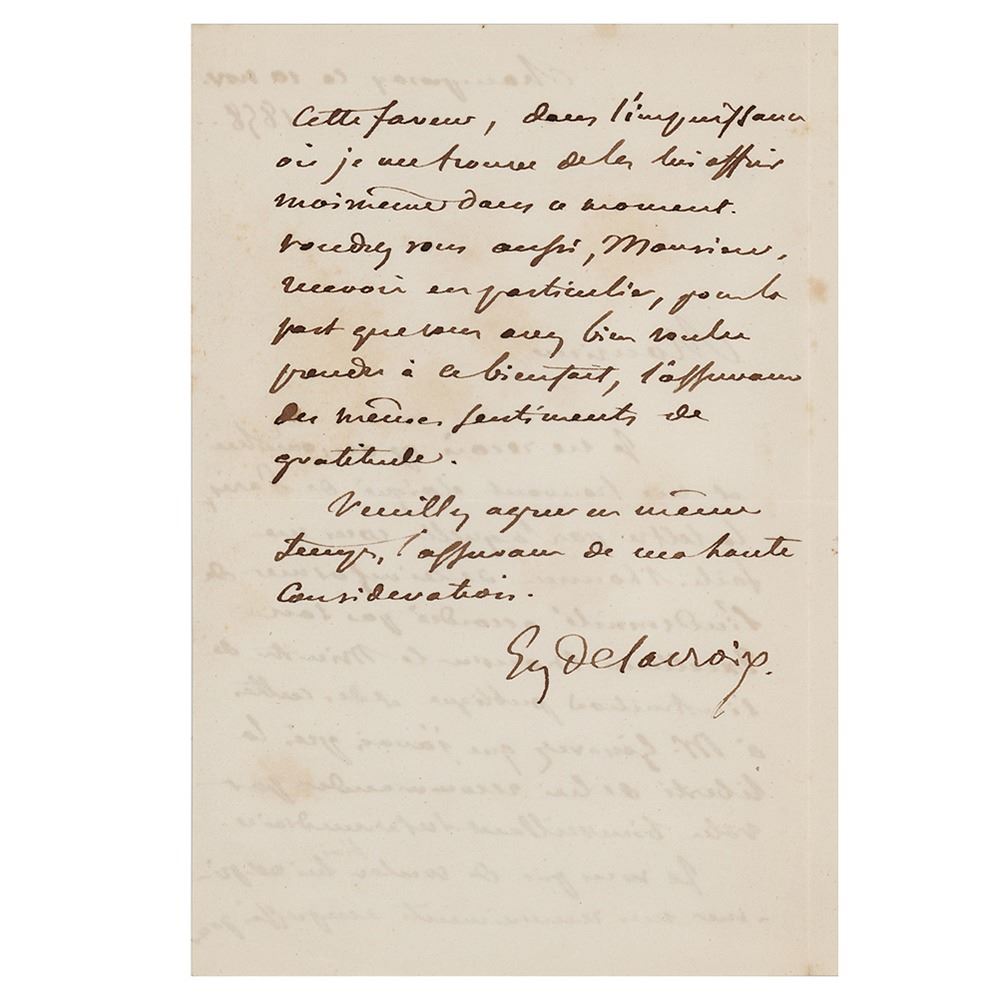 Cette faveur, dans l'impuissance
où je me trouve de les lui offrir
moimême dans ce moment.
voudrez vous aussi, Monsieur,
recevoir en particulier, pour la
part que vous avez bien voulu
prendre à ce bienfait, l'assurance
des mêmes sentiments de
gratitude.
Veuillez agréer en même
temps, l'assurance de ma haute
considération.
Eug Delacroix.